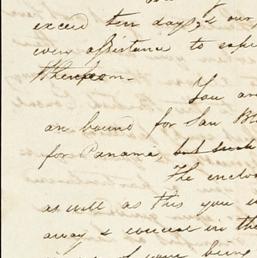 exceed ten days, & our
every assistance to expe
therefrom.
You an
an bound for San Bl
for Panama, but such
The enclo
as well as this you w
away & conceal in the
of your being